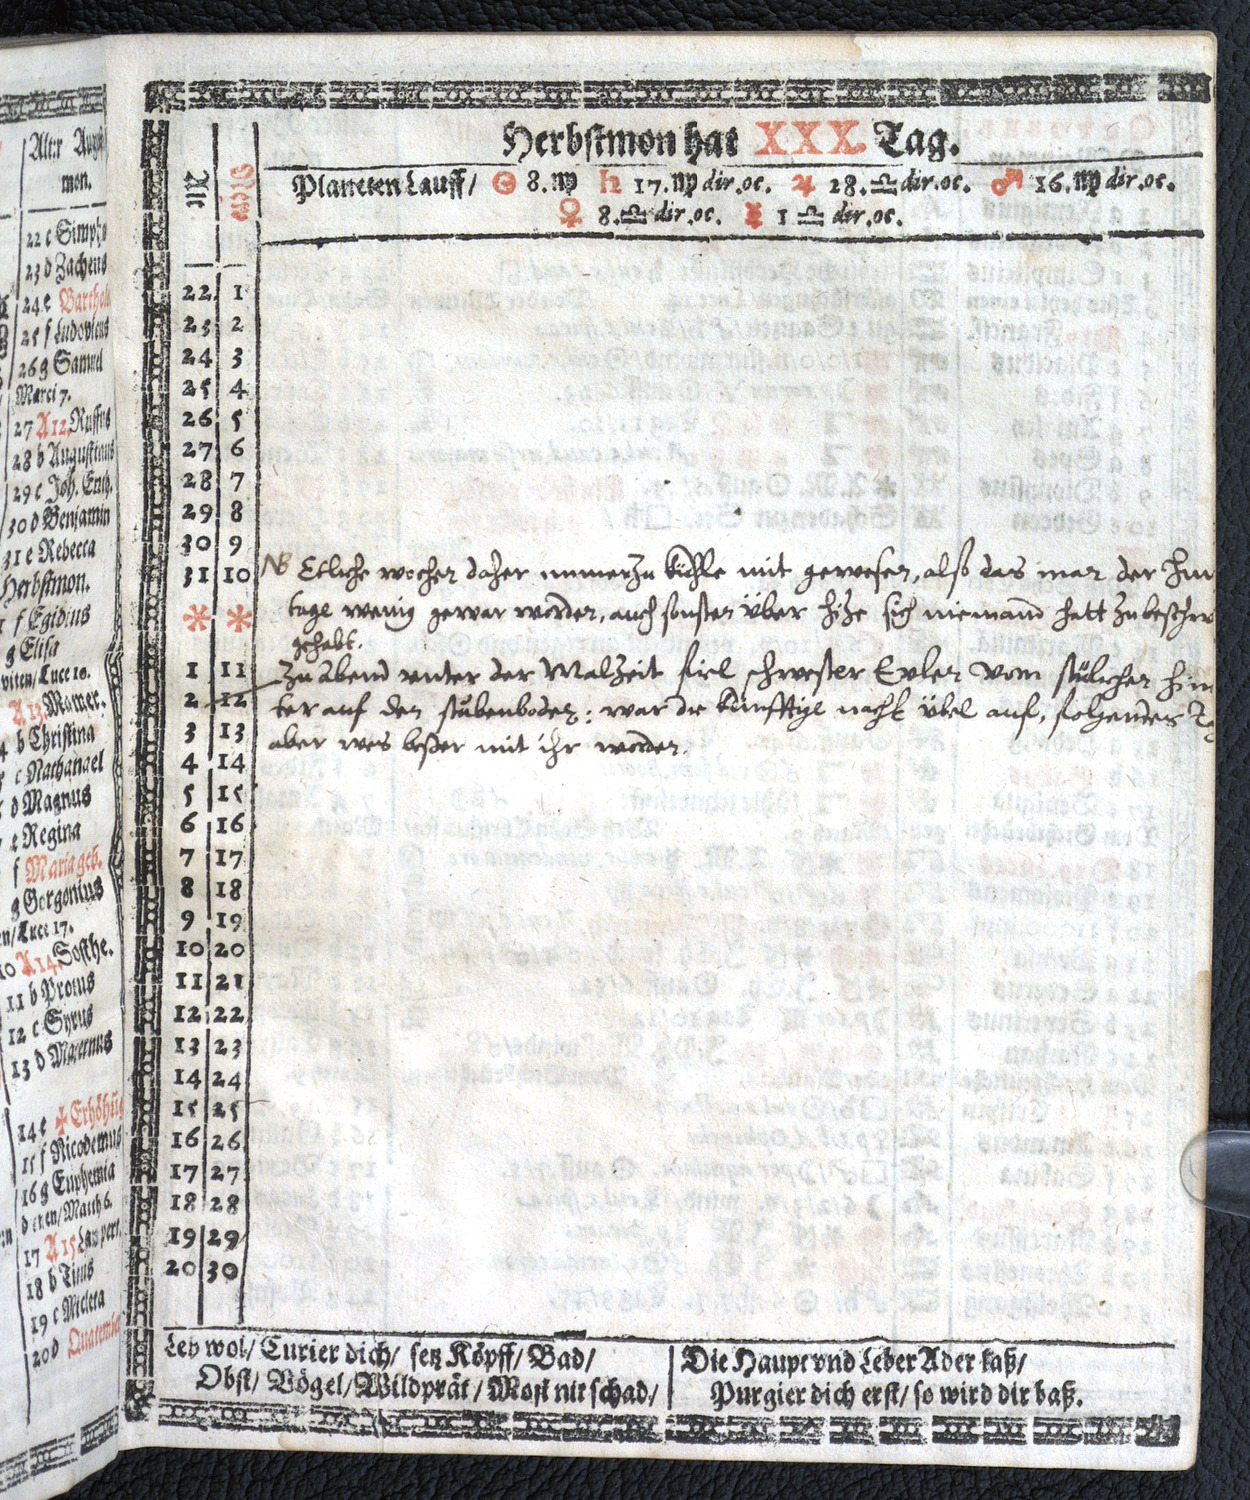 Alter Augst
mon.
22 c Simpho
23 d Zacheus
24 e Barthol
25 f Ludovicus
26 g Samuel
Marci 7.
27 A 12. Ruffus
28 b Augustinus
29 c Joh. Enth.
30 d Benjamin
31 e Rebecca
Herbstmon.
1 f Egidius
g Elisa
Luce 10.
A 13. Mamer.
4 b Christina
c Nathanael
d Magnus
e Regina
f Maria geb.
g Gorgonius
Luce 17.
10 A 14. Sosthe.
11 b Protus
12 c Syrus
13 d Maternus
14 e ✠ Erhöhung
15 f Nicodemus
16 g Euphemia
Matth 6.
17 A 15 Lampert.
18 b Titus
19 c Micleta
20 d Quatember
Herbstmon hat XXX Tag.
Alt Neu
Planeten Lauff/ ☉ 8.♍ ♄ 17.♍ dir.oc. ♃ 28.♎ dir.oc. ♂ 16.♍ dir.oc.
♀ 8.♎ dir.oc. ☿ 1 ♎ dir.oc.
22 1
23 2
24 3
25 4
26 5
27 6
28 7
29 8
30 9
31 10 NB Etliche wochen daher immerzu kühle mit gewesen, also das man der Hun
* * tage wenig gewar worden, auch sonsten über hize sich niemand hatt zu beschwe
gehabt.
1 11 Zu abend unter der Malzeit fiel schwester Evlen vom stülichen hin
2 12 ter auf den stubenboden: war die künfftige nacht übel auf, folgendes Ta
3 13 aber wes beßer mit ihr worden.
4 14
5 15
6 16
7 17
8 18
9 19
10 20
11 21
12 22
13 23
14 24
15 25
16 26
17 27
18 28
19 29
20 30
Ley wol/ Curier dich/ setz Köpff/ Bad/
Obst/ Vögel/ Wildprät/ Most nit schad/
Die Haupt vnd Leber Ader laß/
Purgier dich erst/ so wird dir baß.